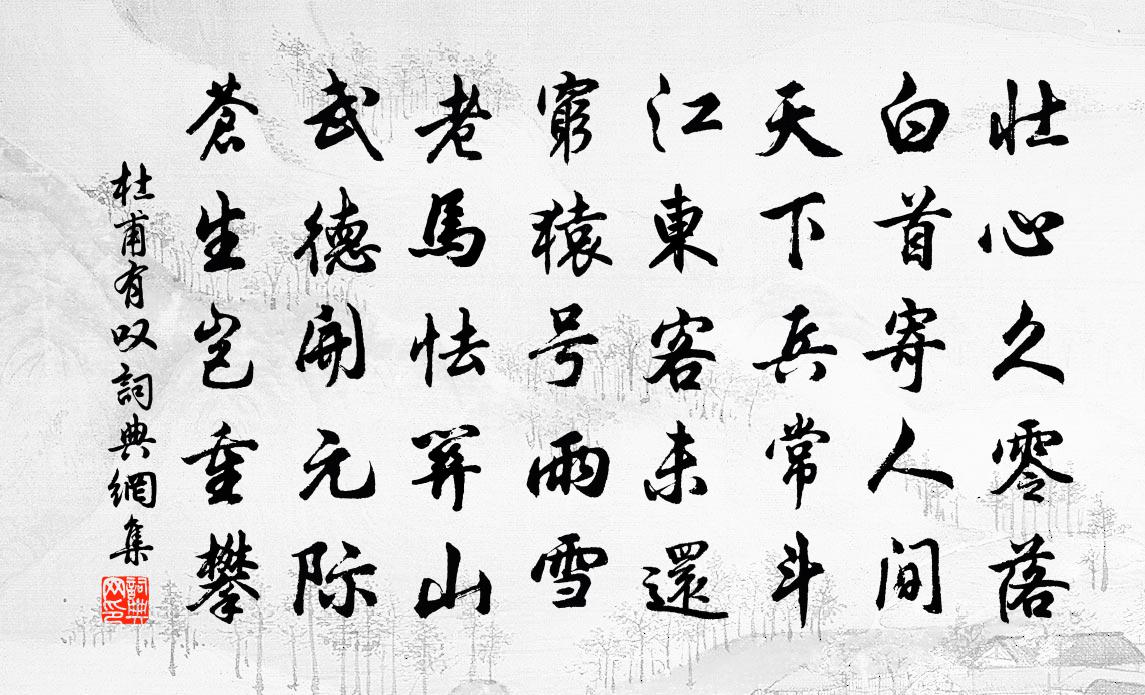 壮心久零落
白首寄人间
天下兵常斗
江東客未還
窮猿号雨雪
老馬怯関山
武德開元际
蒼生岂重攀
杜甫有叹詞典網集
詞典
网印